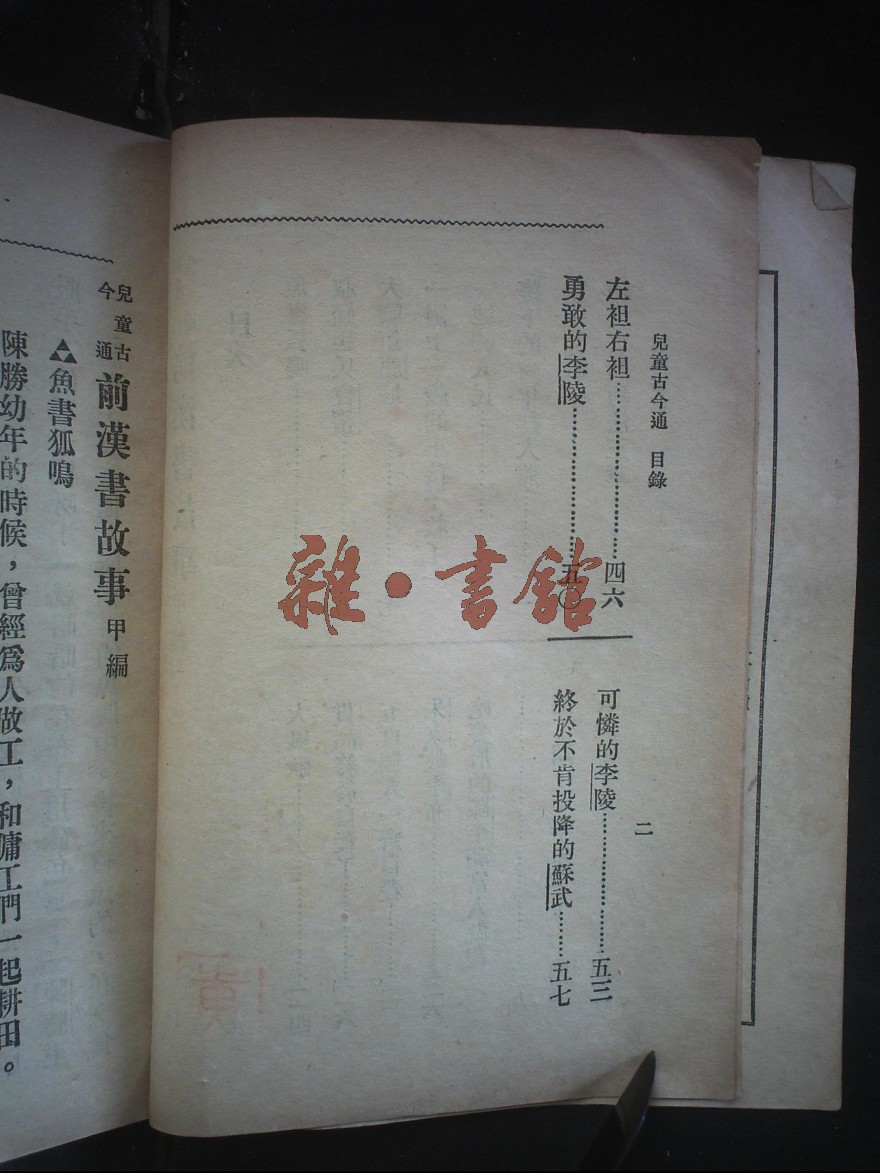 兒童古今通 目錄
左袒右袒……………………四六
勇敢的李陵……………………五〇
二
可憐的李陵……………………五三
終於不肯投降的蘇武………五七
兒童古今通 前漢書故事 甲編
魚書狐鳴
陳勝幼年的時候，曾經爲人做工，和傭工們一起耕田。
雜·書館
黄